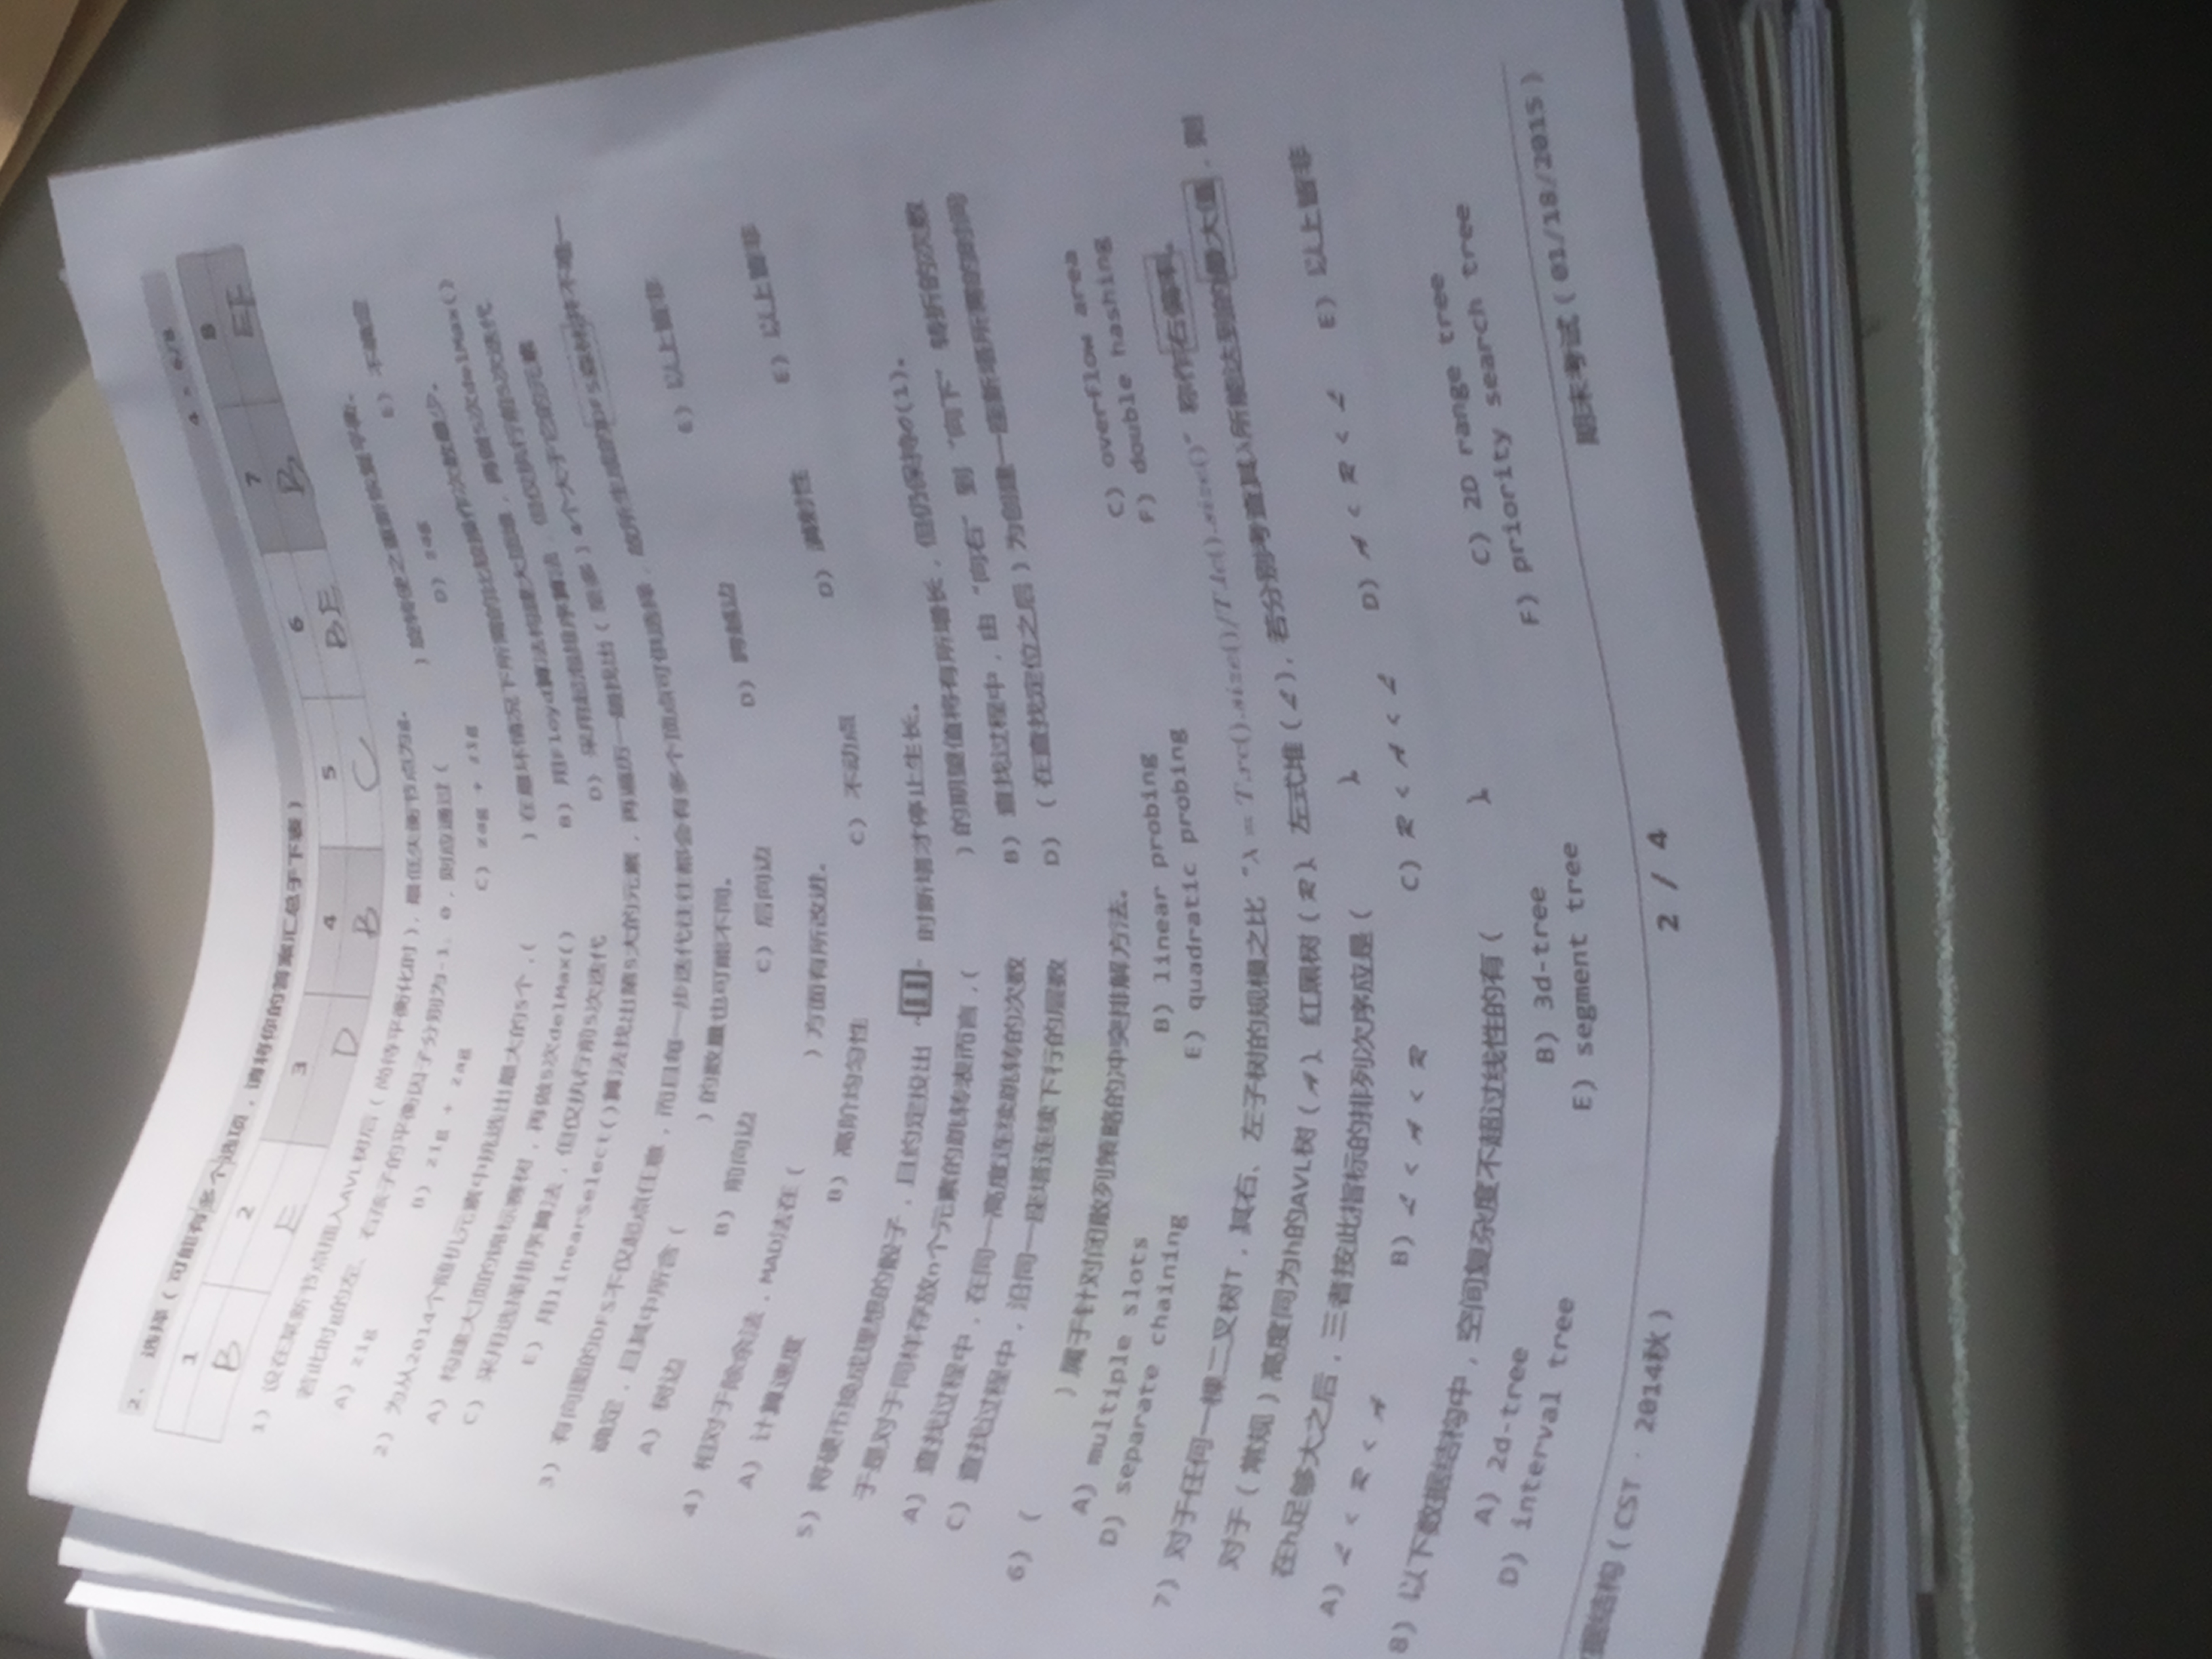 2. 选择（可能有多个选项，请将你的答案汇总于下表） 4 × 6/8
1 2 3 4 5 6 7 8
B E D B C BE B EF
1) 设在某新节点插入AVL树后（尚待平衡化时），最低失衡节点为g。
若此时g的左、右孩子的平衡因子分别为-1、0，则应通过（ ）旋转使之重新恢复平衡。
A) zig B) zig + zag C) zag + zig D) zag E) 不确定
2) 为从2014个随机元素中挑选出最大的5个，（ ）在最坏情况下所需的比较操作次数最少。
A) 构建大顶的锦标赛树，再做5次delMax() B) 用Floyd算法构建大顶堆，再做5次delMax()
C) 采用选择排序算法，但仅执行前5次迭代 D) 采用起泡排序算法，但仅执行前5次迭代
E) 用linearSelect()算法找出第5大的元素，再遍历一趟找出（至多）4个大于它的元素
3) 有向图的DFS不仅起点任意，而且每一步迭代往往都会有多个顶点可供选择，故所生成的DFS森林并不唯一
确定，且其中所含（ ）的数量也可能不同。
A) 树边 B) 前向边 C) 后向边 D) 跨越边 E) 以上皆非
4) 相对于除余法，MAD法在（ ）方面有所改进。
A) 计算速度 B) 高阶均匀性 C) 不动点 D) 满射性 E) 以上皆非
5) 将硬币换成理想的骰子，且约定投出 时新塔才停止生长。
于是对于同样存放n个元素的跳转表而言，（ ）的期望值将有所增长，但仍保持O(1)。
A) 查找过程中，在同一高度连续跳转的次数 B) 查找过程中，由“向右”到“向下”转折的次数
C) 查找过程中，沿同一座塔连续下行的层数 D) （在查找定位之后）为创建一座新塔所需的时间
6) （ ）属于针对闭散列策略的冲突排解方法。
A) multiple slots B) linear probing C) overflow area
D) separate chaining E) quadratic probing F) double hashing
7) 对于任何一棵二叉树T，其右、左子树的规模之比“λ = T.rc().size()/T.lc().size()”称作右偏率。
对于（常规）高度同为h的AVL树（A）、红黑树（R）、左式堆（L），若分别考查其λ所能达到的最大值，则
在h足够大之后，三者按此指标的排列次序应是（ ）。
A) L < R < A B) L < A < R C) R < A < L D) A < R < L E) 以上皆非
8) 以下数据结构中，空间复杂度不超过线性的有（ ）。
A) 2d-tree B) 3d-tree C) 2D range tree
D) interval tree E) segment tree F) priority search tree
据结构（CST · 2014秋） 2 / 4 期末考试（01/18/2015）